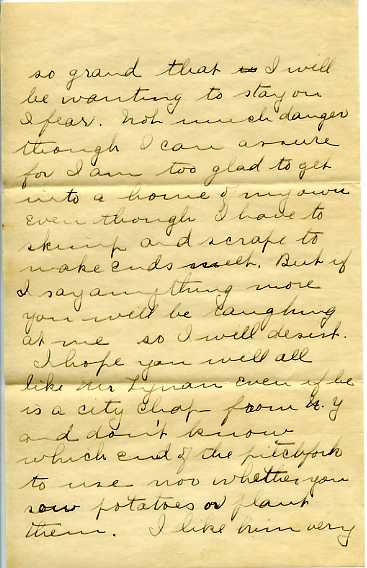 so grand that I will
be wanting to stay on
I fear. Not much danger
though I can assure
for I am too glad to get
into a home of my own
even though I have to
skimp and scrape to
make ends meet. But if
I say anything more
you will be laughing
at me so I will desist.
I hope you will all
like Mr Lynan even if he
is a city chap from N. Y
and don't know
which end of the pitchfork
to use nor whether you
sow potatoes or plant
them. I like him very